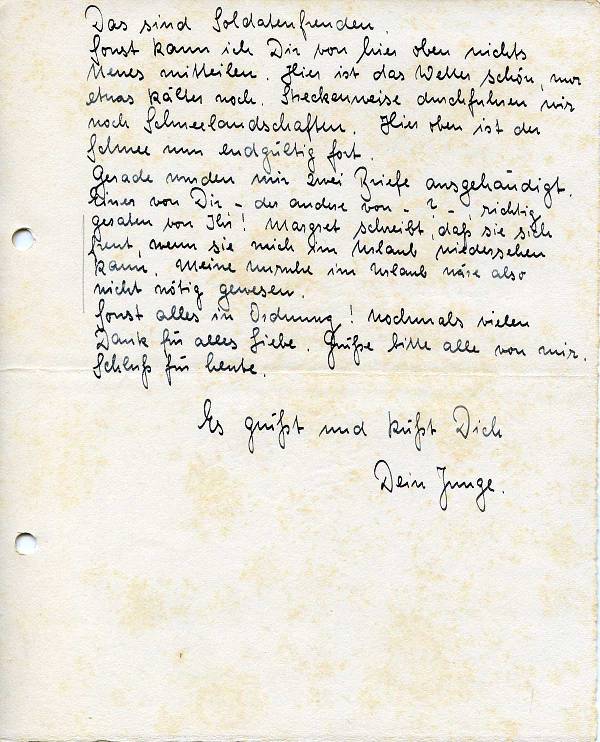 Das sind Soldatenfreuden.
Sonst kann ich Dir von hier oben nichts
Neues mitteilen. Hier ist das Wetter schön, nur
etwas kälter noch. Streckenweise durchfuhren wir
noch Schneelandschaften. Hier oben ist der
Schnee nun endgültig fort.
Gerade wurden mir zwei Briefe ausgehändigt.
Einer von Dir – der andere von – ? – , richtig
geraten von Ihr! Margret schreibt, daß sie sich
freut, wenn sie mich im Urlaub wiedersehen
kann. Meine Unruhe im Urlaub wäre also
nicht nötig gewesen.
Sonst alles in Ordnung! Nochmals vielen
Dank für alles Liebe. Grüße bitte alle von mir.
Schluß für heute.
Es grüßt und küßt Dich
Dein Junge.